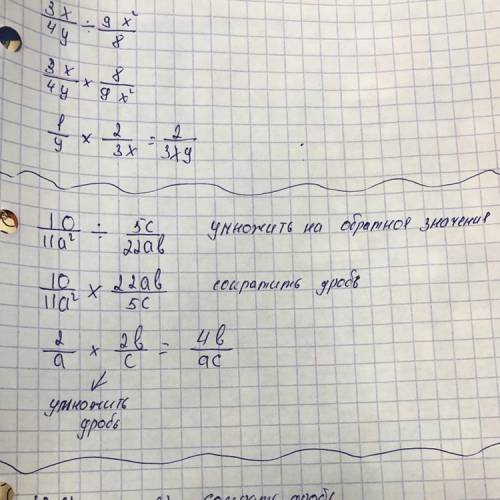 3x/4y ÷ 9x²/8
3x/4y × 8/9x²
1/y × 2/3x = 2/3xy
10/11a² ÷ 5c/22ab умножить на обратное значение
10/11a² × 22ab/5c сократить дробь
2/a × 2b/c = 4b/ac
умножить
дробь
сократ дробь